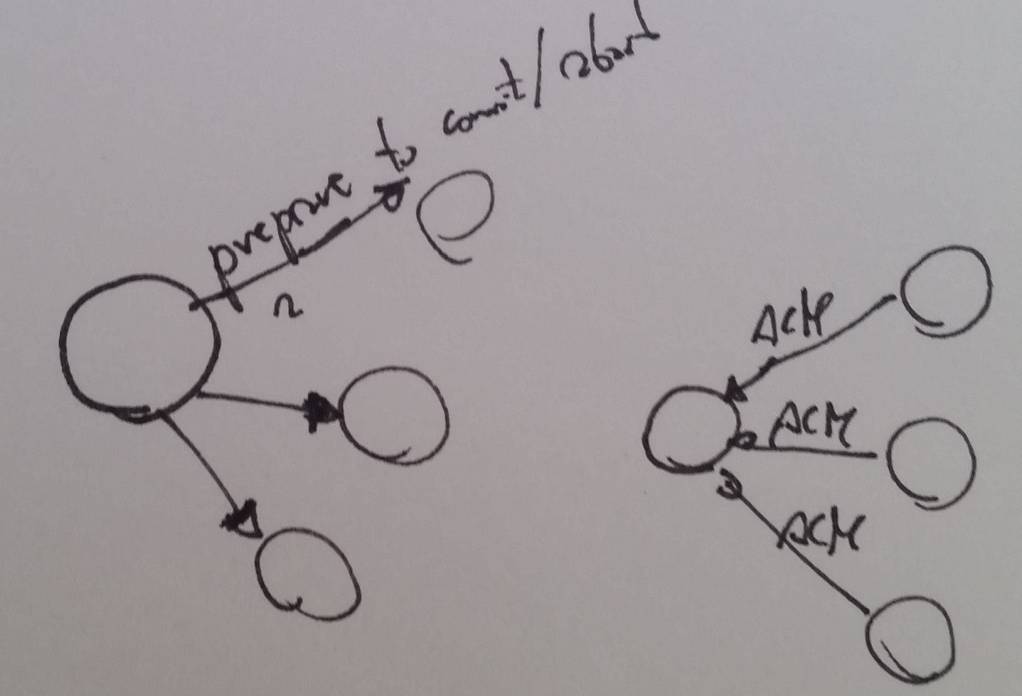 prepare to commit/abort
2
ACK
ACK
ACK